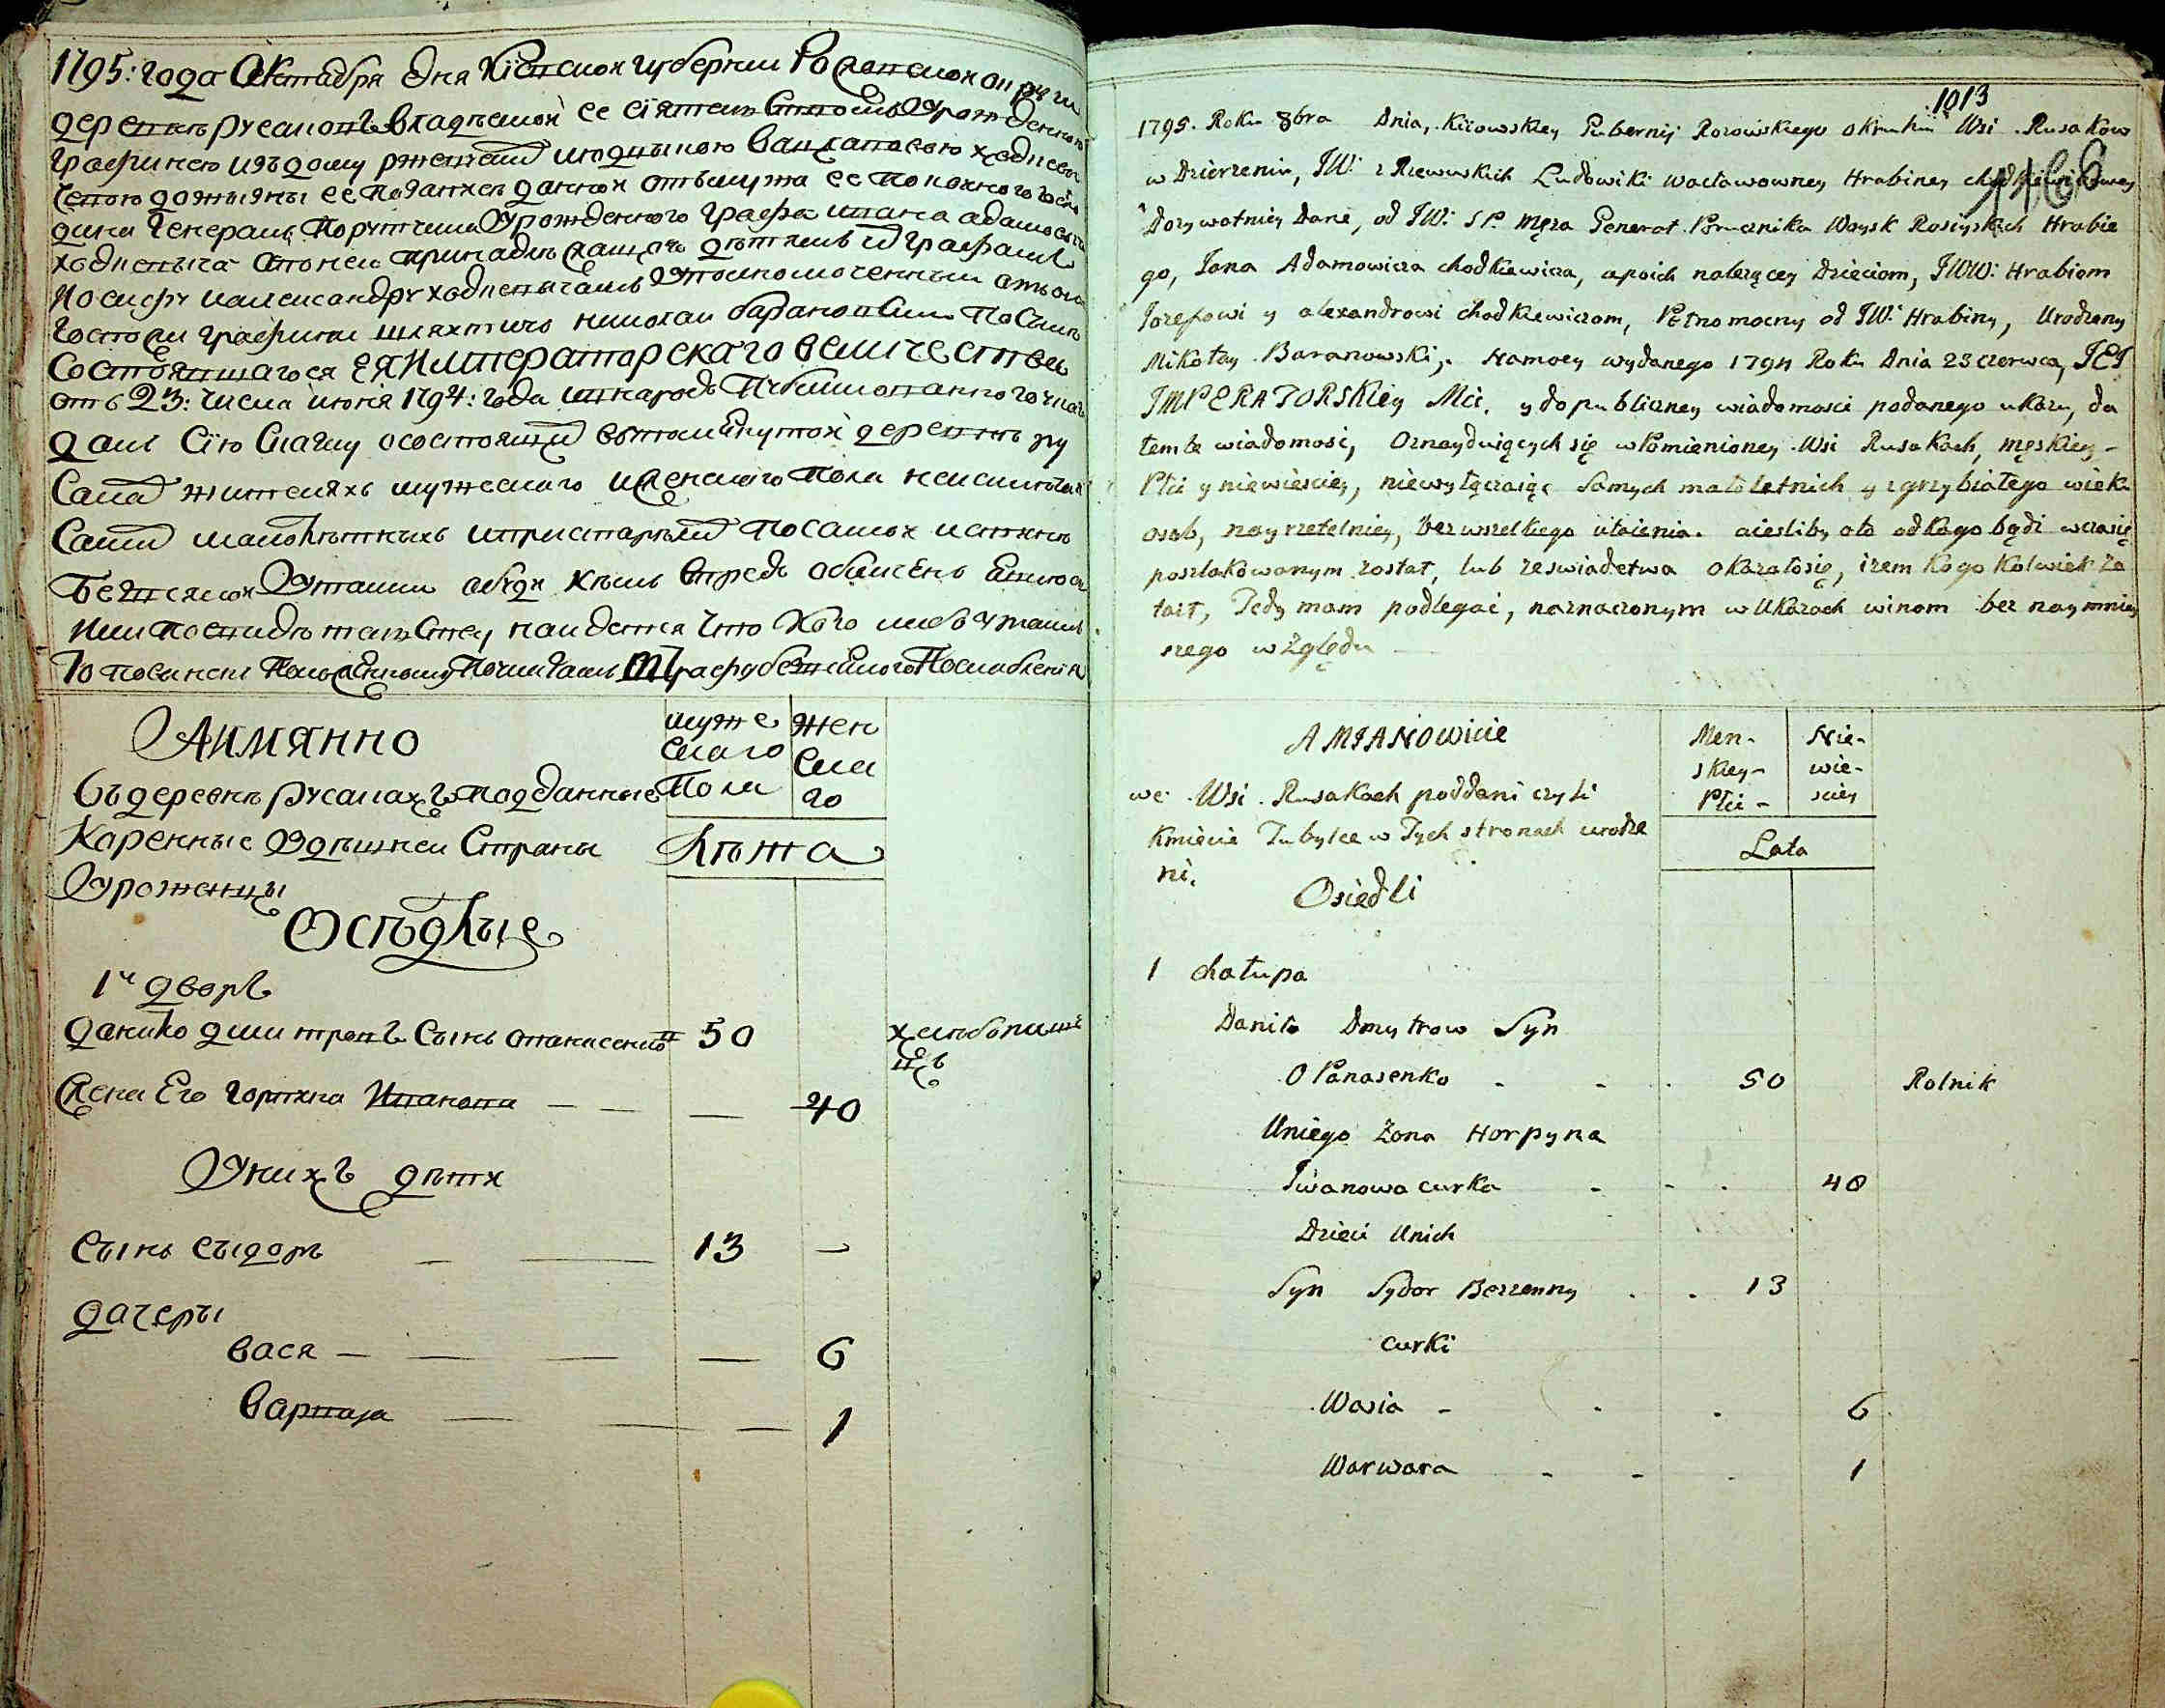 1795: года Октября дня Кіевской губерніи
деревнѣ русаковъ владѣемой ее сіятельством Урожденною
Графинею изъ дому ржевский людвикою вацлавовою
дана Генералъ Порутчика Урожденного Графа ивана адамовича
ходкевича а по ней принадлежащая дѣтямъ Графамъ
Иосифу иалександру ходкевичамъ уполномоченный отъ оной
Госпожи Графини шляхтичъ николай барановский По Силѣ
Состоявшагося ЕЯ Императорского величества
отъ 23: числа июня 1794: года
даю Сію Скаску о состоящих выш деревнѣ ру
саках жителяхъ мужеского и женского пола
Самих малолѣтныхъ и престарѣлих по самой истиннѣ
без всякой Утайки
или по свидѣтельству найдется что кого либо утаилъ
1013
1795. Roku 8bra Dnia, Kiiowskiey Gubernij Okruhu Wsi Rusakow
w Dzierzeniu, JW: z Rzewuskich Ludowiki Wacławowney Hrabiney
Dozywotniey Dane, od JW: SP. Męza Generał Porucznika Woysk Rosiyskich Hrabie
go, Jana Adamowicza chodkiewicza, apoich nalezącey Dzieciom, JWW: Hrabiom
Jozefowi y alexandrowi chodkiewiczom, Pełnomocny od JW: Hrabiny, Urodzony
Mikołay Baranowski, Namocy wydanego 1794 Roku Dnia 23 czerwca, JEJ
IMPERATORSKIey Mci. y do publiczney wiadomosci podanego ukazu, da
tem te wiadomosć, Oznayduiących się w Pomienioney Wsi Rusakach, męskiey -
Płci y niewiesciey, niewyłączaiąc Samych małoletnich y zgrzybiałego wieku
osob, nayrzetelniey, bez wszelkiego utaienia. aiesliby oto od kogo bądź wczasię
poszlakowanym został, lub ze swiadetwa okazałosię, izem kogo kolwiek za
taił, Tedy mam podlegać, naznaczonym w Ukazach winom bez naymniey
szego względu
Аимянно
муже
ского
Пола
жен
ска
го
Въдеревнѣ русакахъ подданные
Каренные Здѣшней Страны
Уроженцы
Лѣта
Осѣдлые
1й дворъ
данило дмитровъ Сынъ 50 хлѣбопаше
цъ
жена Его горпина Иванова — — — 40
Унихъ дѣти
Сынъ Сыдоръ — — 13 —
дачеры
Вася — — — — 6
Варвара — — — 1
AMIANOWICIE
Men-
skiey-
Płci-
Nie-
wie-
sciey
we Wsi Rusakach poddani czyli
Kmiecie Tubylce w Tych stronach urodze
ni.
Lata
Osiedli
1 chałupa
Daniło Dmytrow Syn
OPanasenko - - . 50 Rolnik
Uniego Zona Horpyna
Iwanowa curka - - . 40
Dzieci Unich
Syn Sydor Bezzenny . . 13
curki
Wasia - - . 6
Warwara - - . 1